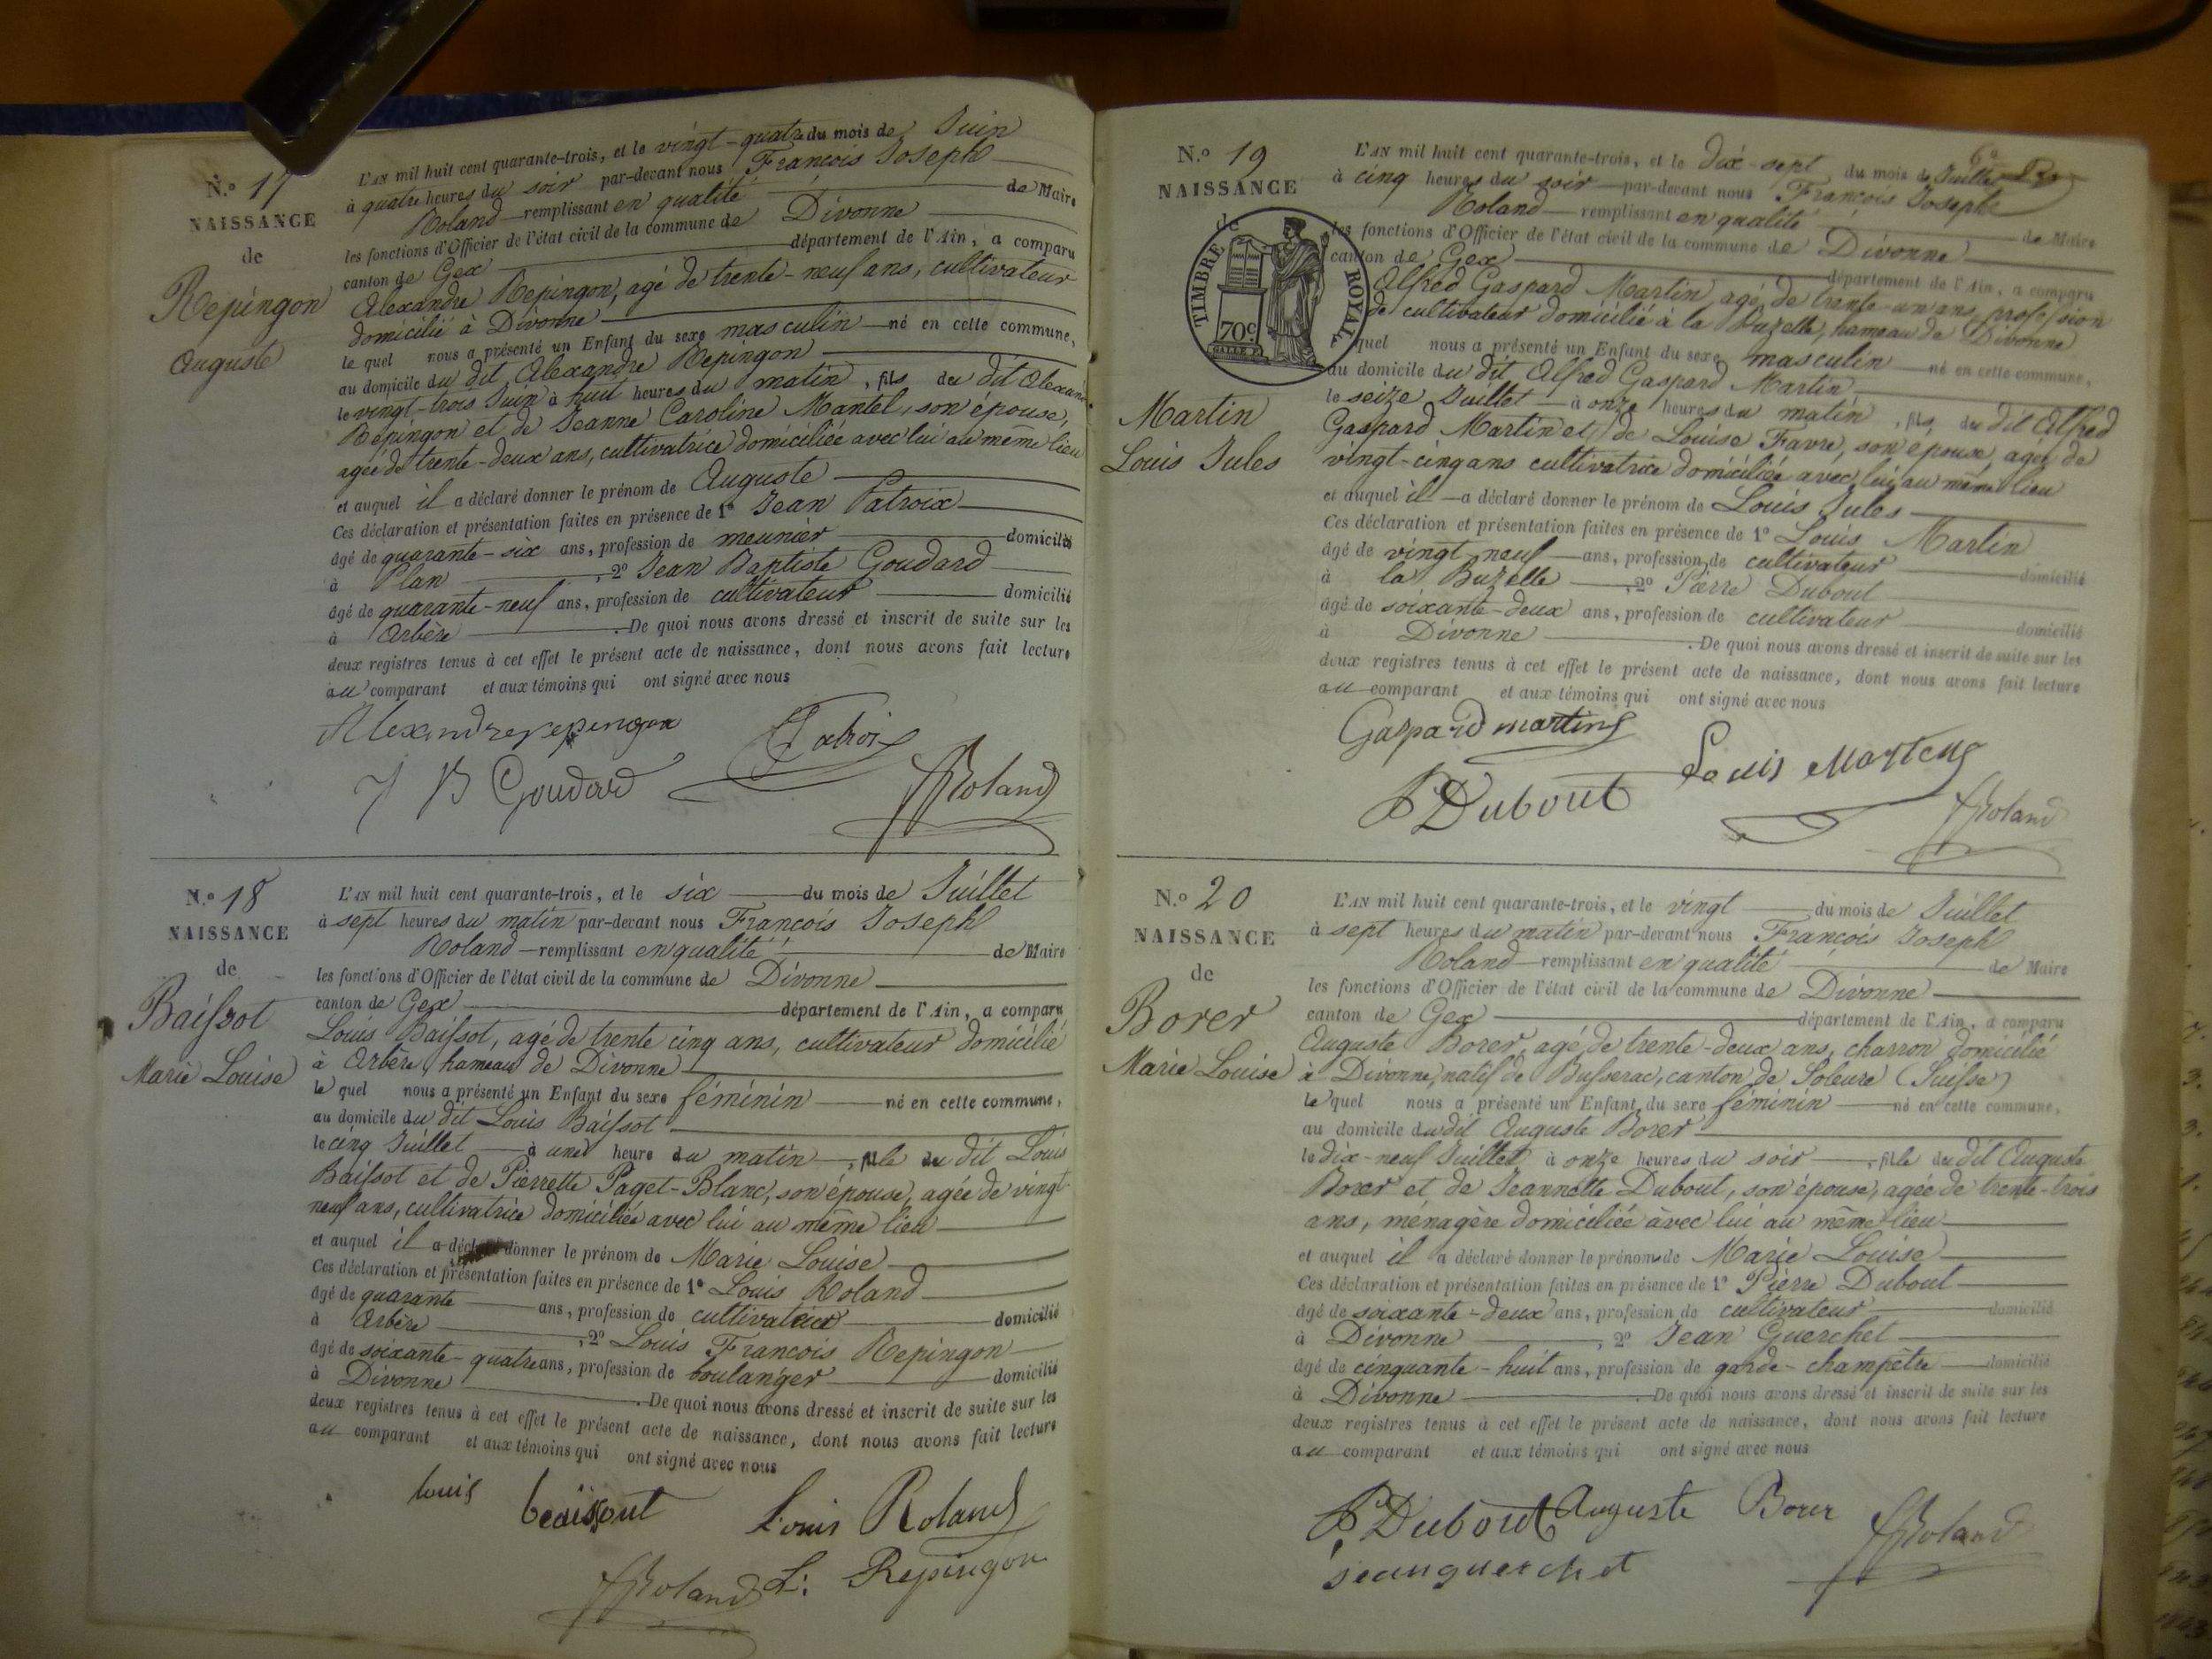 N.º 17
NAISSANCE
de
Repingon
Auguste
L'AN mil huit cent quarante-trois, et le vingt-quatre du mois de Juin
à quatre heures du soir par-devant nous François Joseph
Roland remplissant en qualité de Maire
les fonctions d'Officier de l'état civil de la commune de Divonne
canton de Gex département de l'Ain, a comparu
Alexandre Repingon, agé de trente-neuf ans, cultivateur
domicilié à Divonne
le quel nous a présenté un Enfant du sexe masculin né en cette commune,
au domicile du dit Alexandre Repingon
le vingt-trois Juin à huit heures du matin, fils du dit Alexandre
Repingon et de Jeanne Caroline Mantel, son épouse,
agée de trente-deux ans, cultivatrice domiciliée avec lui au même lieu
et auquel il a déclaré donner le prénom de Auguste
Ces déclaration et présentation faites en présence de 1º Jean Patroix
âgé de quarante-six ans, profession de meunier domicilié
à Plan, 2º Jean Baptiste Goudard
âgé de quarante-neuf ans, profession de cultivateur domicilié
à Arbère. De quoi nous avons dressé et inscrit de suite sur les
deux registres tenus à cet effet le présent acte de naissance, dont nous avons fait lecture
au comparant et aux témoins qui ont signé avec nous
Alexandre repingon Patroix
J B Goudard JRoland
N.º 18
NAISSANCE
de
Baissot
Marie Louise
L'AN mil huit cent quarante-trois, et le six du mois de Juillet
à sept heures du matin par-devant nous François Joseph
Roland remplissant en qualité de Maire
les fonctions d'Officier de l'état civil de la commune de Divonne
canton de Gex département de l'Ain, a comparu
Louis Baissot, agé de trente cinq ans, cultivateur domicilié
à Arbère, hameau de Divonne
le quel nous a présenté un Enfant du sexe féminin né en cette commune,
au domicile du dit Louis Baissot
le cinq Juillet à une heure du matin, fille du dit Louis
Baissot et de Pierrette Paget-Blanc, son épouse, agée de vingt
neuf ans, cultivatrice domiciliée avec lui au même lieu
et auquel il a déclaré donner le prénom de Marie Louise
Ces déclaration et présentation faites en présence de 1º Louis Roland
âgé de quarante ans, profession de cultivateur domicilié
à Arbère, 2º Louis François Repingon
âgé de soixante-quatre ans, profession de boulanger domicilié
à Divonne. De quoi nous avons dressé et inscrit de suite sur les
deux registres tenus à cet effet le présent acte de naissance, dont nous avons fait lecture
au comparant et aux témoins qui ont signé avec nous
louis beaissout Louis Roland
JRoland L. Repingon
N.º 19
NAISSANCE
de
TIMBRE ROYAL
70 c.
Martin
Louis Jules
L'AN mil huit cent quarante-trois, et le dix-sept du mois de Juillet
à cinq heures du soir par-devant nous François Joseph
Roland remplissant en qualité de Maire
les fonctions d'Officier de l'état civil de la commune de Divonne
canton de Gex département de l'Ain, a comparu
Alfred Gaspard Martin, agé de trente-un ans, profession
de cultivateur domicilié à la Buzelle, hameau de Divonne
quel nous a présenté un Enfant du sexe masculin né en cette commune,
au domicile du dit Alfred Gaspard Martin
le seize Juillet à onze heures du matin, fils du dit Alfred
Gaspard Martin et de Louise Favre, son épouse, agée de
vingt-cinq ans cultivatrice domiciliée avec lui au même lieu
et auquel il a déclaré donner le prénom de Louis Jules
Ces déclaration et présentation faites en présence de 1º Louis Martin
âgé de vingt neuf ans, profession de cultivateur domicilié
à la Buzelle, 2º Pierre Dubout
âgé de soixante-deux ans, profession de cultivateur domicilié
à Divonne. De quoi nous avons dressé et inscrit de suite sur les
deux registres tenus à cet effet le présent acte de naissance, dont nous avons fait lecture
au comparant et aux témoins qui ont signé avec nous
Gaspard martin
Louis Martin
P Dubout
JRoland
N.º 20
NAISSANCE
de
Borer
Marie Louise
L'AN mil huit cent quarante-trois, et le vingt du mois de Juillet
à sept heures du matin par-devant nous François Joseph
Roland remplissant en qualité de Maire
les fonctions d'Officier de l'état civil de la commune de Divonne
canton de Gex département de l'Ain, a comparu
Auguste Borer, agé de trente-deux ans, charron domicilié
à Divonne, natif de Busserac, canton de Soleure (Suisse)
le quel nous a présenté un Enfant du sexe féminin né en cette commune,
au domicile du dit Auguste Borer
le dix-neuf Juillet à onze heures du soir, fille du dit Auguste
Borer et de Jeannette Dubout, son épouse, agée de trente-trois
ans, ménagère domiciliée avec lui au même lieu
et auquel il a déclaré donner le prénom de Marie Louise
Ces déclaration et présentation faites en présence de 1º Pierre Dubout
âgé de soixante-deux ans, profession de cultivateur domicilié
à Divonne, 2º Jean Guerchet
âgé de cinquante-huit ans, profession de garde-champêtre domicilié
à Divonne. De quoi nous avons dressé et inscrit de suite sur les
deux registres tenus à cet effet le présent acte de naissance, dont nous avons fait lecture
au comparant et aux témoins qui ont signé avec nous
P Dubout Auguste Borer JRoland
jeanguerchet